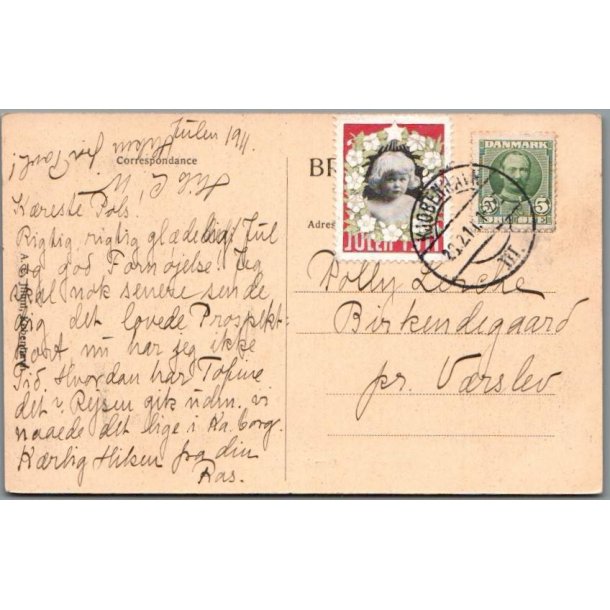 Julen 1911
Correspondance
Kæreste Pols.
Rigtig, rigtig glædelig Jul
og god Fornøjelse. Jeg
skal nok senere sende
dig det lovede Prospekt-
kort nu har jeg ikke
Tid. Hvordan har
det? Rejsen gik udm. vi
naaede det lige i
Kærlig Hilsen fra din
Ras.
BR
Adres
JULEN 1911
KJØBENHAVN
III.
DANMARK
5
Polly Lerche
Birkendegaard
pr. Værslev